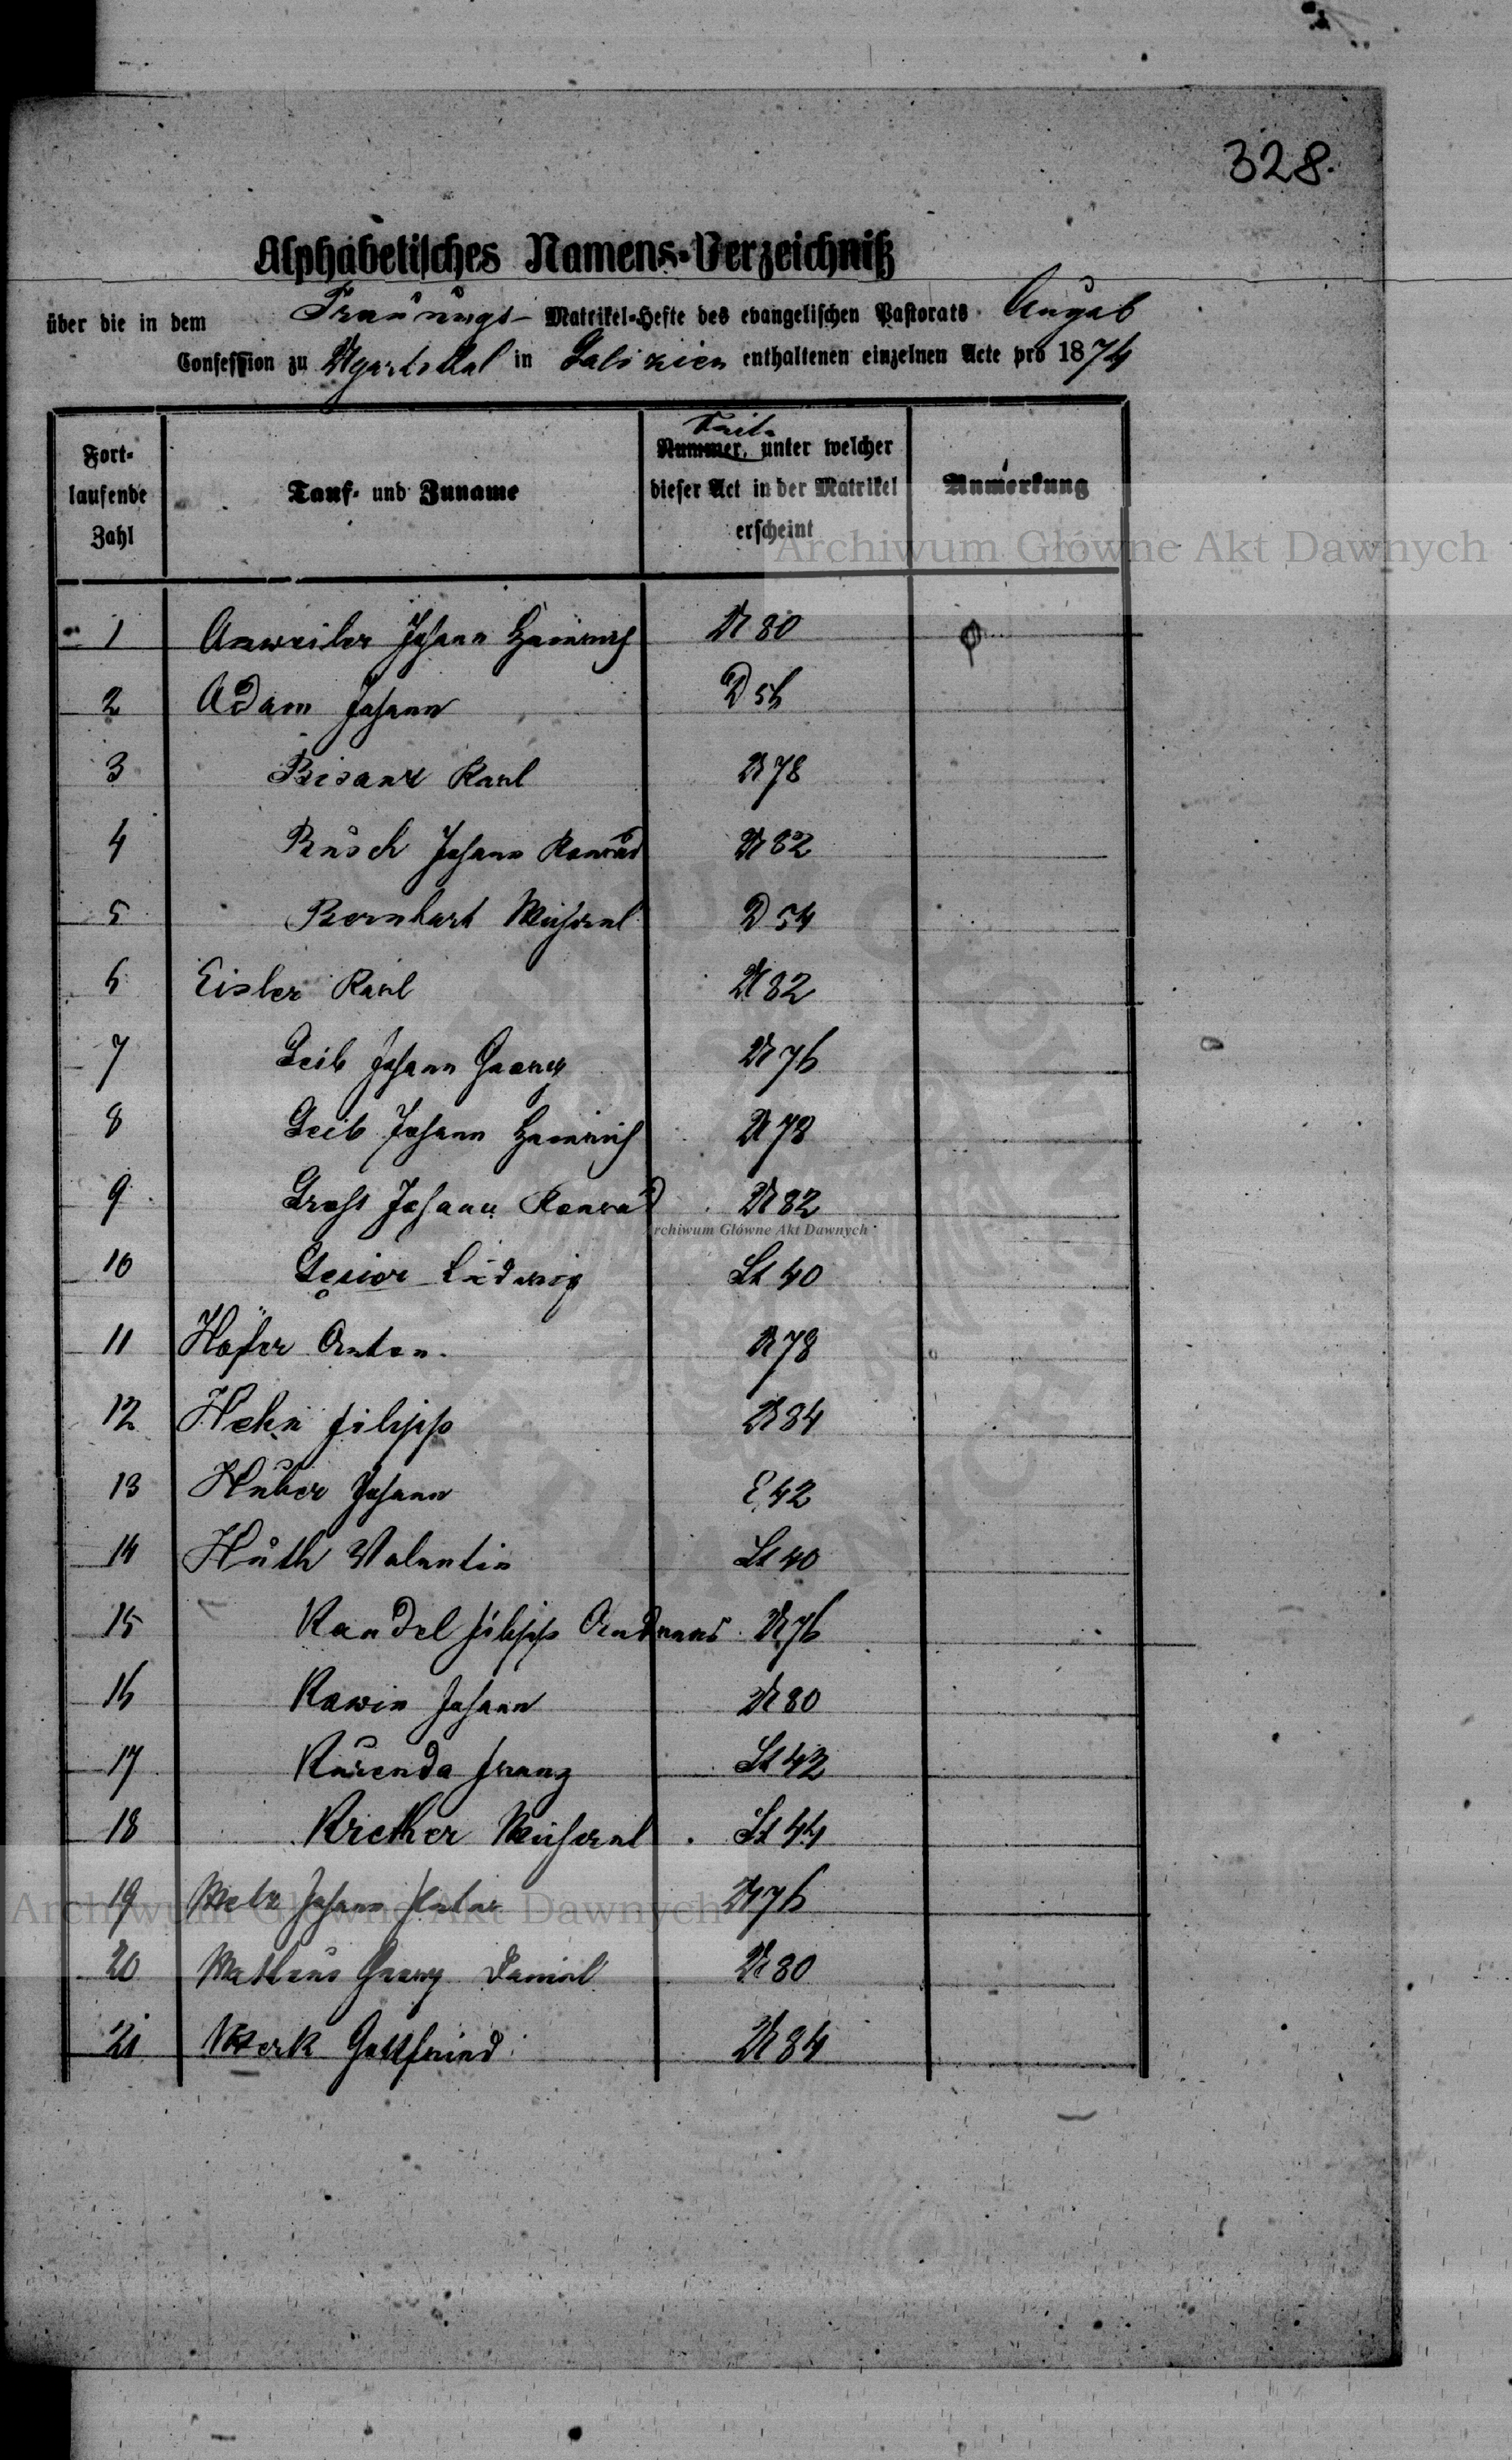 328.
Alphabetisches Namens-Verzeichniß
über die in dem Trauungs- Matrikel-Hefte des evangelischen Pastorats Augsb
Confession zu Ugartsthal in Galizien enthaltenen einzelnen Acte pro 1874
Fort-
laufende
Zahl
Tauf- und Zuname
Seite
Nummer, unter welcher
dieser Act in der Matrikel
erscheint
Anmerkung
1 Anweiler Johann Heinrich U 80
2 Adam Johann D 56
3 Bisanz Karl U 78
4 Busch Johann Konrad U 82
5 Bernhart Michael D 54
6 Eisler Karl U 82
7 Geib Johann Georg U 76
8 Geib Johann Heinrich U 78
9 Groß Johann Konrad U 82
10 Ludwig Lt 40
11 Höfer Anton. U 78
12 Hehn Filipp U 84
13 Huber Johann E 42
14 Huth Valentin Lt 40
15 Kandel Filipp Andreas U 76
16 Kawin Johann U 80
17 Kurenda Franz Lt 42
18 Krether Michael Lt 44
19 Metz Johann Peter U 76
20 Matheus Georg Daniel U 80
21 Merk Gottfried U 84
Archiwum Główne Akt Dawnych
Archiwum Główne Akt Dawnych
Archiwum Główne Akt Dawnych